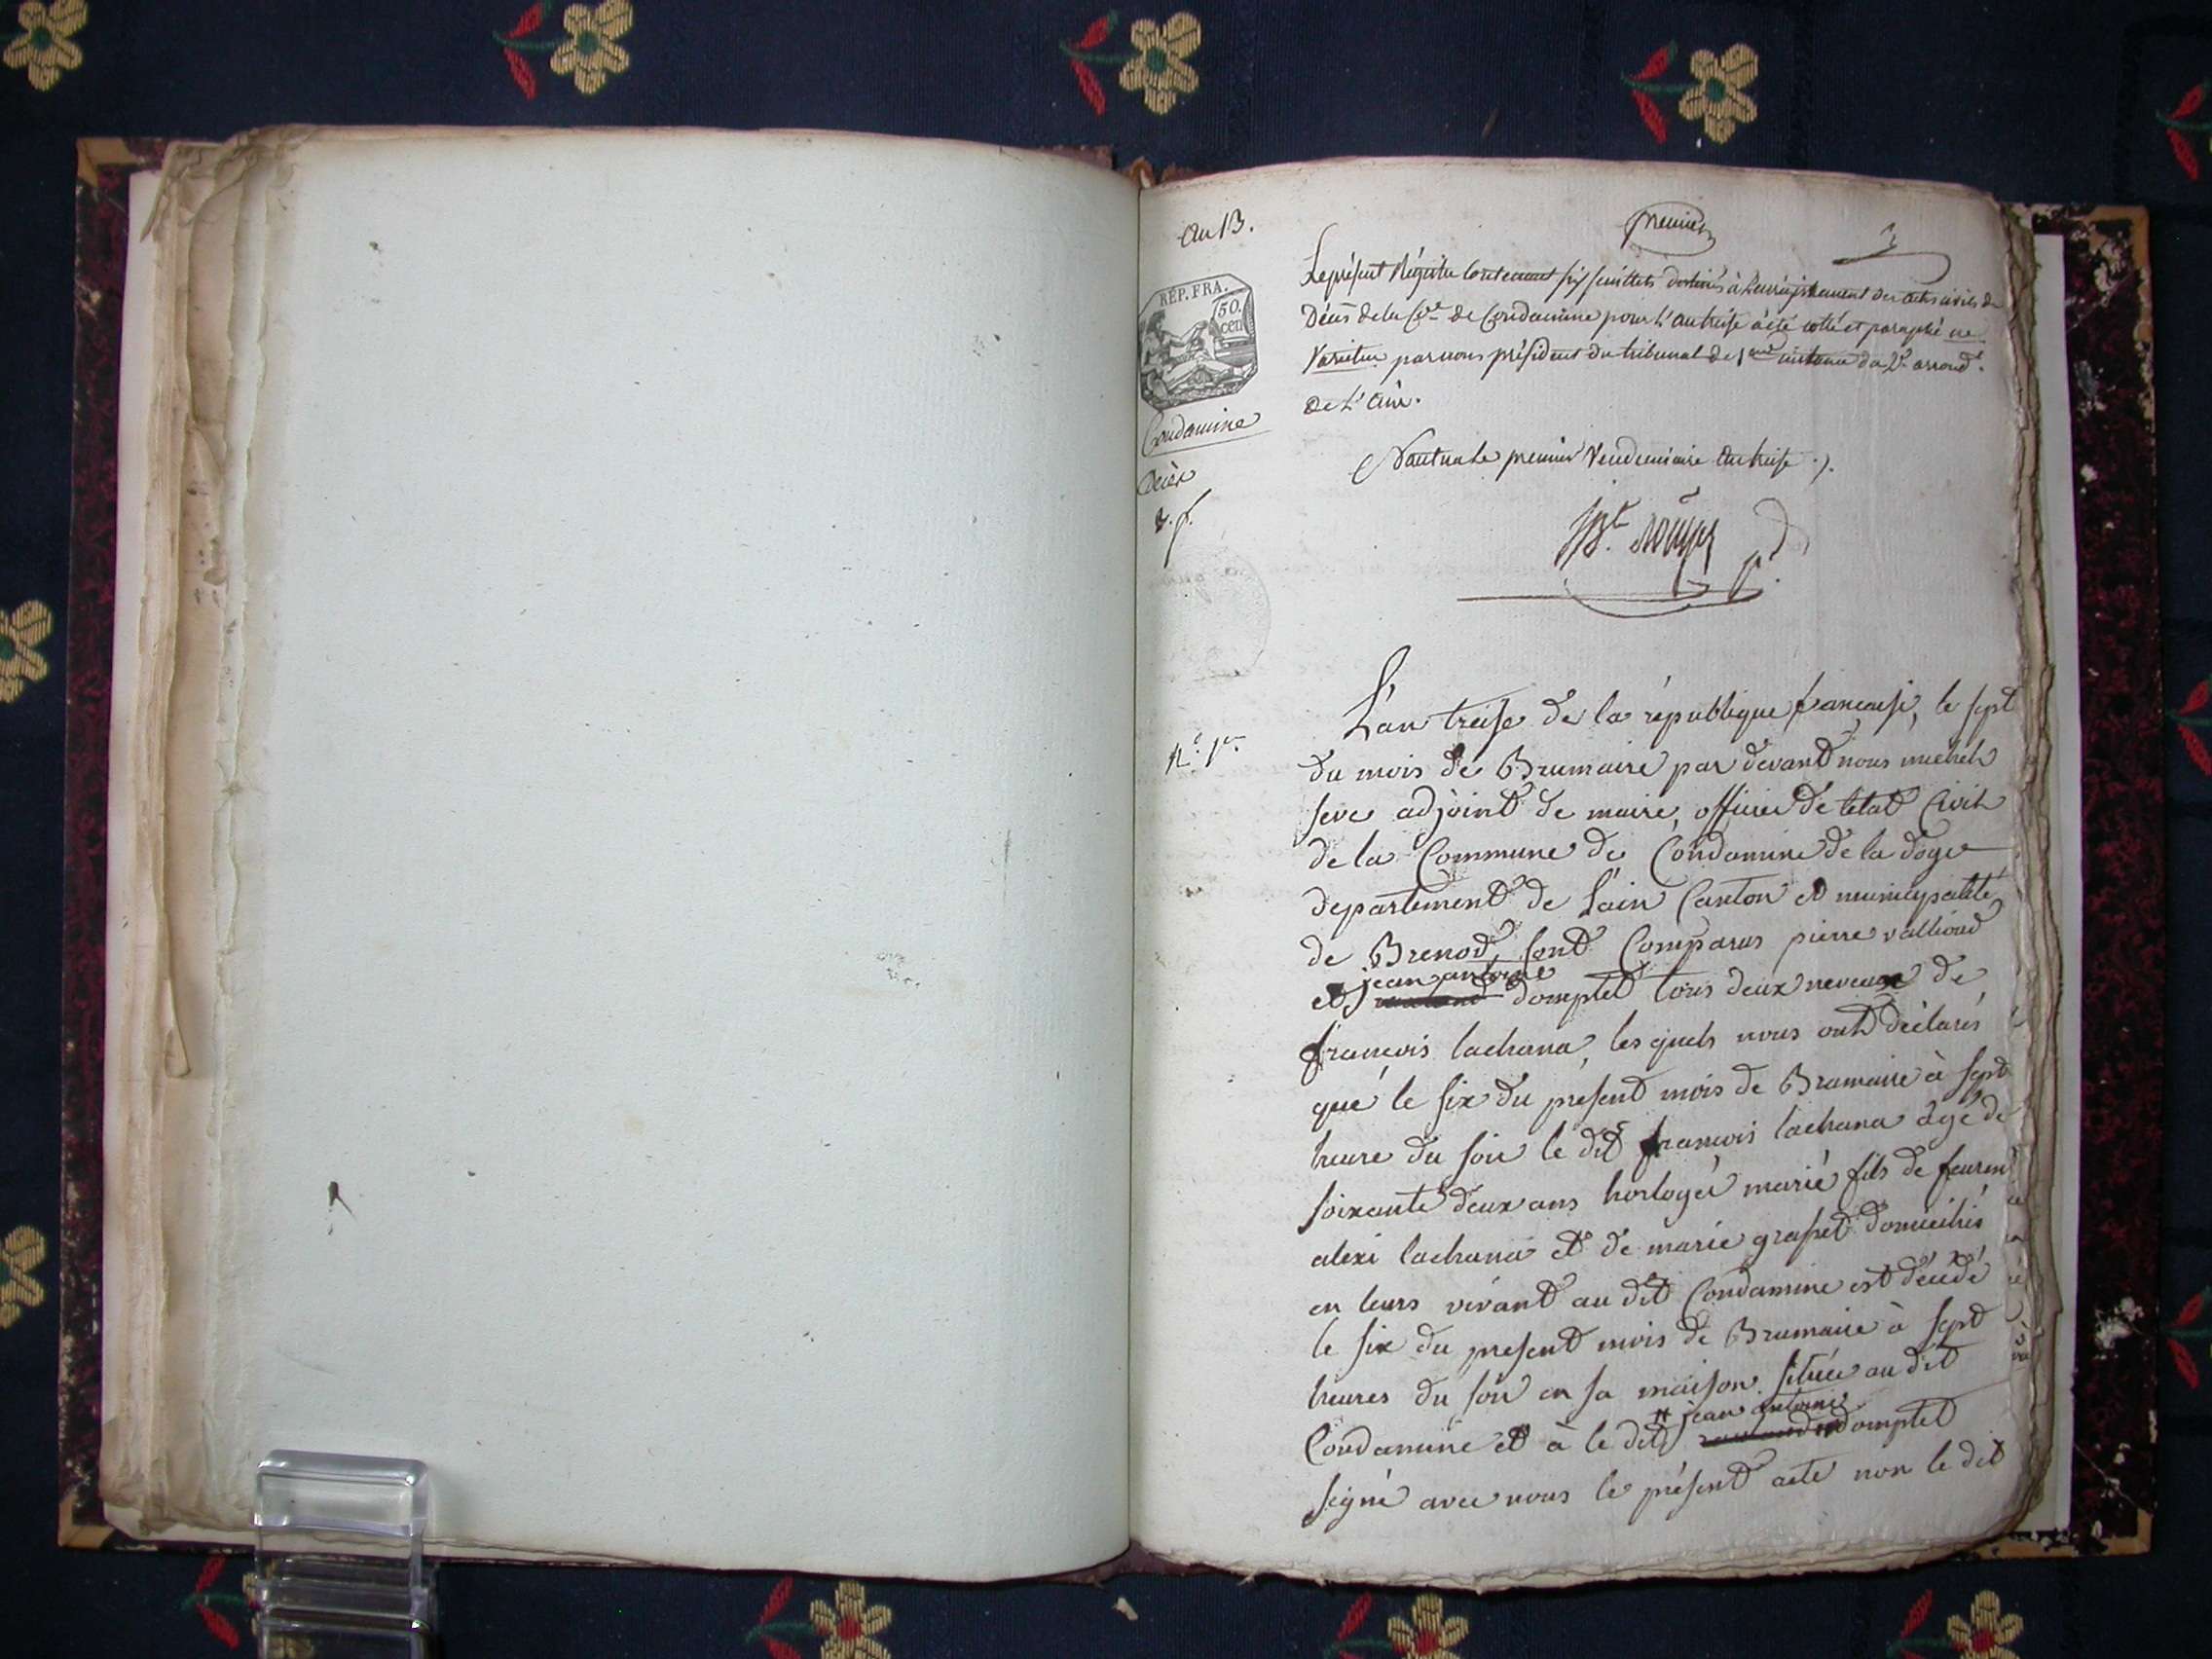 An 13.
premier
REP. FRA.
50.
cen
Condamine
Décès
Le présent Régistre Contenant six feuillets destinés à L'enrégistrement des actes civils de
Décès de la Cne de Condamine pour L'an treise a été cotté et paraphé ne
Varietur par nous président du tribunal de 1ere instance du 2e arrond.t
de L'Ain.
Nantua le premier Vendemiaire an treise
N.o 1er
L'an treise de la république francaise, le sept
du mois de Brumaire par devant nous michel
seve adjoint de maire, officier de letat Civil
de la Commune de Condamine de la doye
departement de Lain Canton et municipalité
de Brenod, sont Comparus pierre vallioud
jean antoine
et domptet tous deux neveux de
francois lachana, les quels nous ont déclarés
que le six du présent mois de Brumaire à sept
heure du soir le dit francois lachana âgé de
soixante deux ans horloger marié fils de feu
alexi lachana et de marie grasset domiciliés
en leurs vivant au dit Condamine est décédé
le six du present mois de Brumaire à sept
heures du soir en sa maison située au dit
jean antoine
Condamine et à le dit domptet
signé avec nous le présent acte non le dit